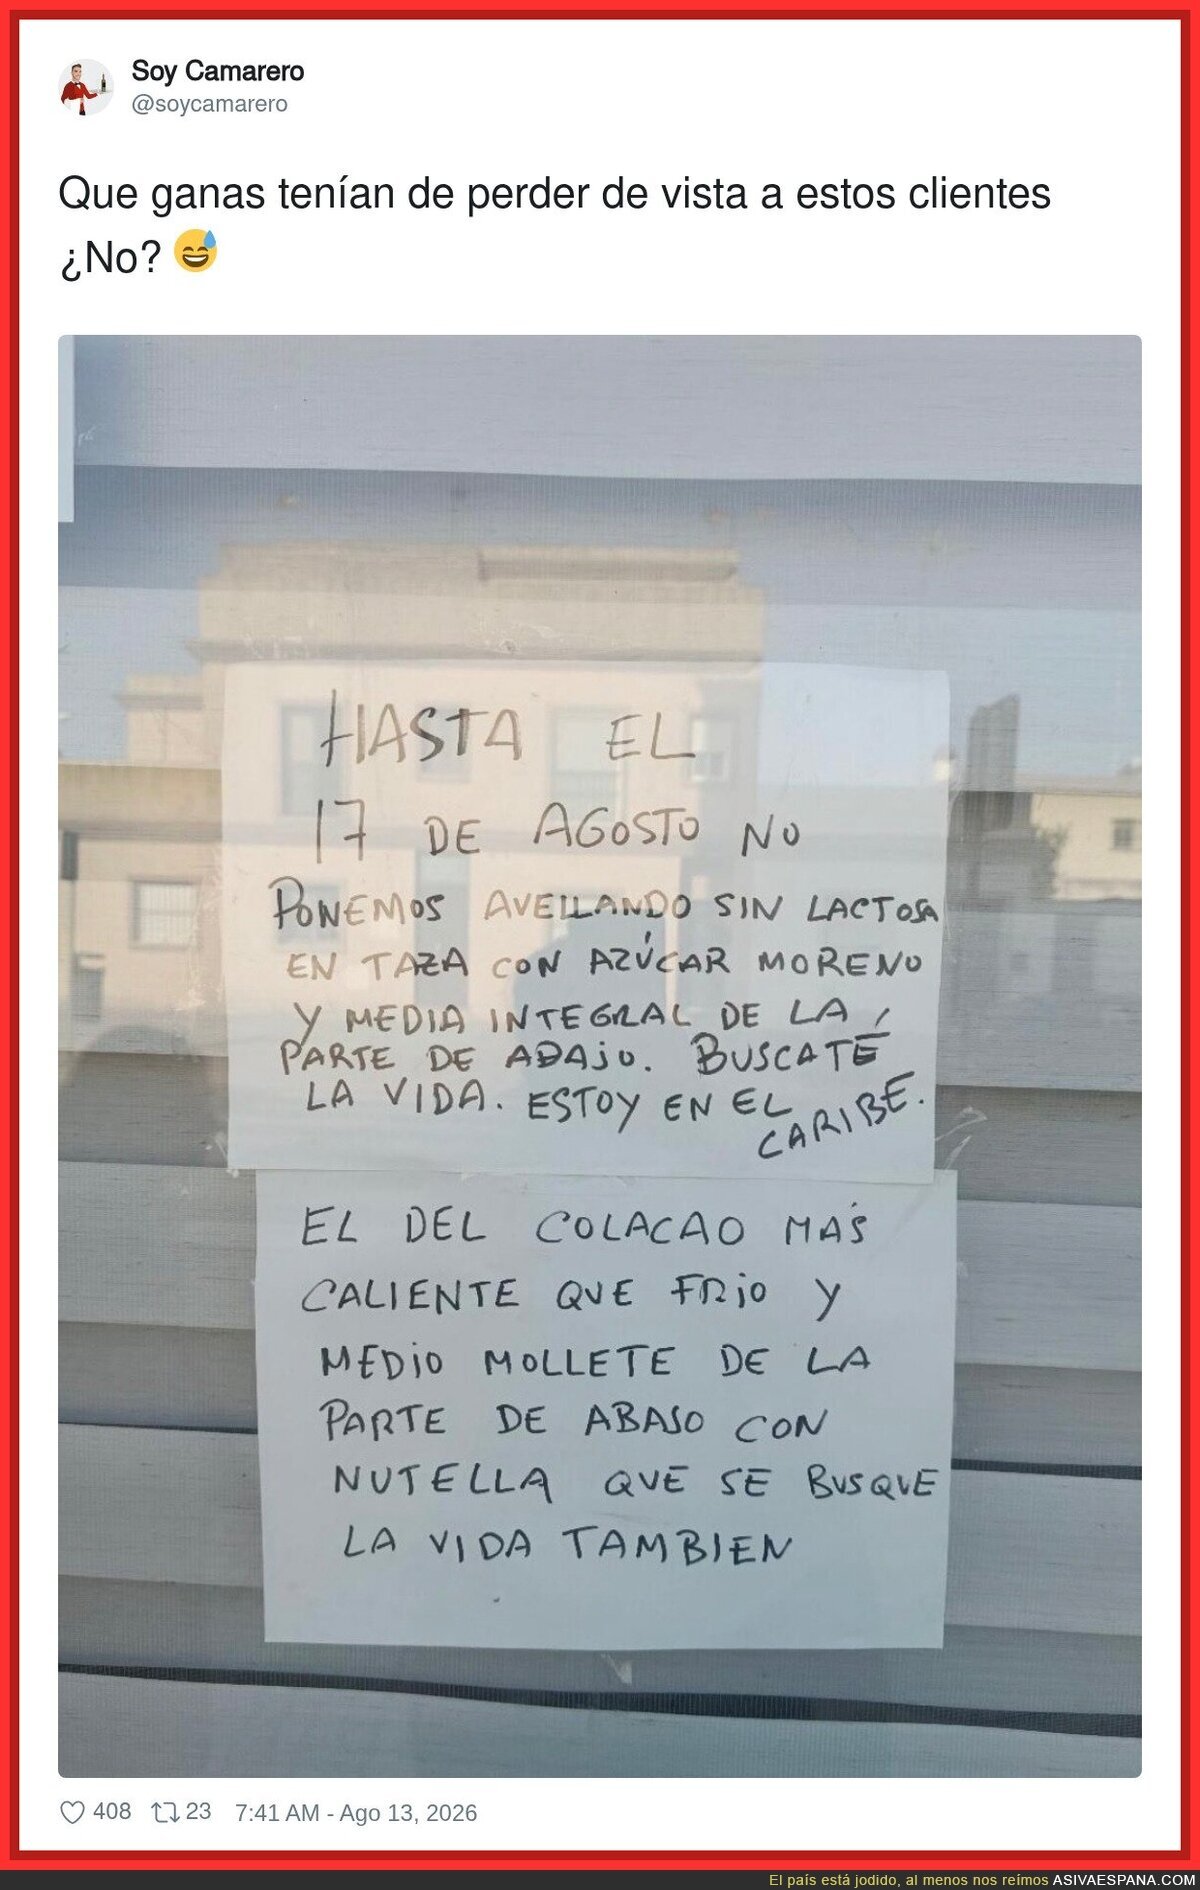 Soy Camarero
@soycamarero
Que ganas tenían de perder de vista a estos clientes
¿No? 😅
HASTA EL
17 DE AGOSTO NO
PONEMOS AVELLANDO SIN LACTOSA
EN TAZA CON AZÚCAR MORENO
Y MEDIA INTEGRAL DE LA
PARTE DE ABAJO. BUSCATÉ
LA VIDA. ESTOY EN EL
CARIBE.
EL DEL COLACAO MAS
CALIENTE QUE FRIO Y
MEDIO MOLLETE DE LA
PARTE DE ABASO CON
NUTELLA QUE SE BUSQUE
LA VIDA TAMBIEN
408 23 7:41 AM - Ago 13, 2026
El país está jodido, al menos nos reímos ASIVAESPANA.COM